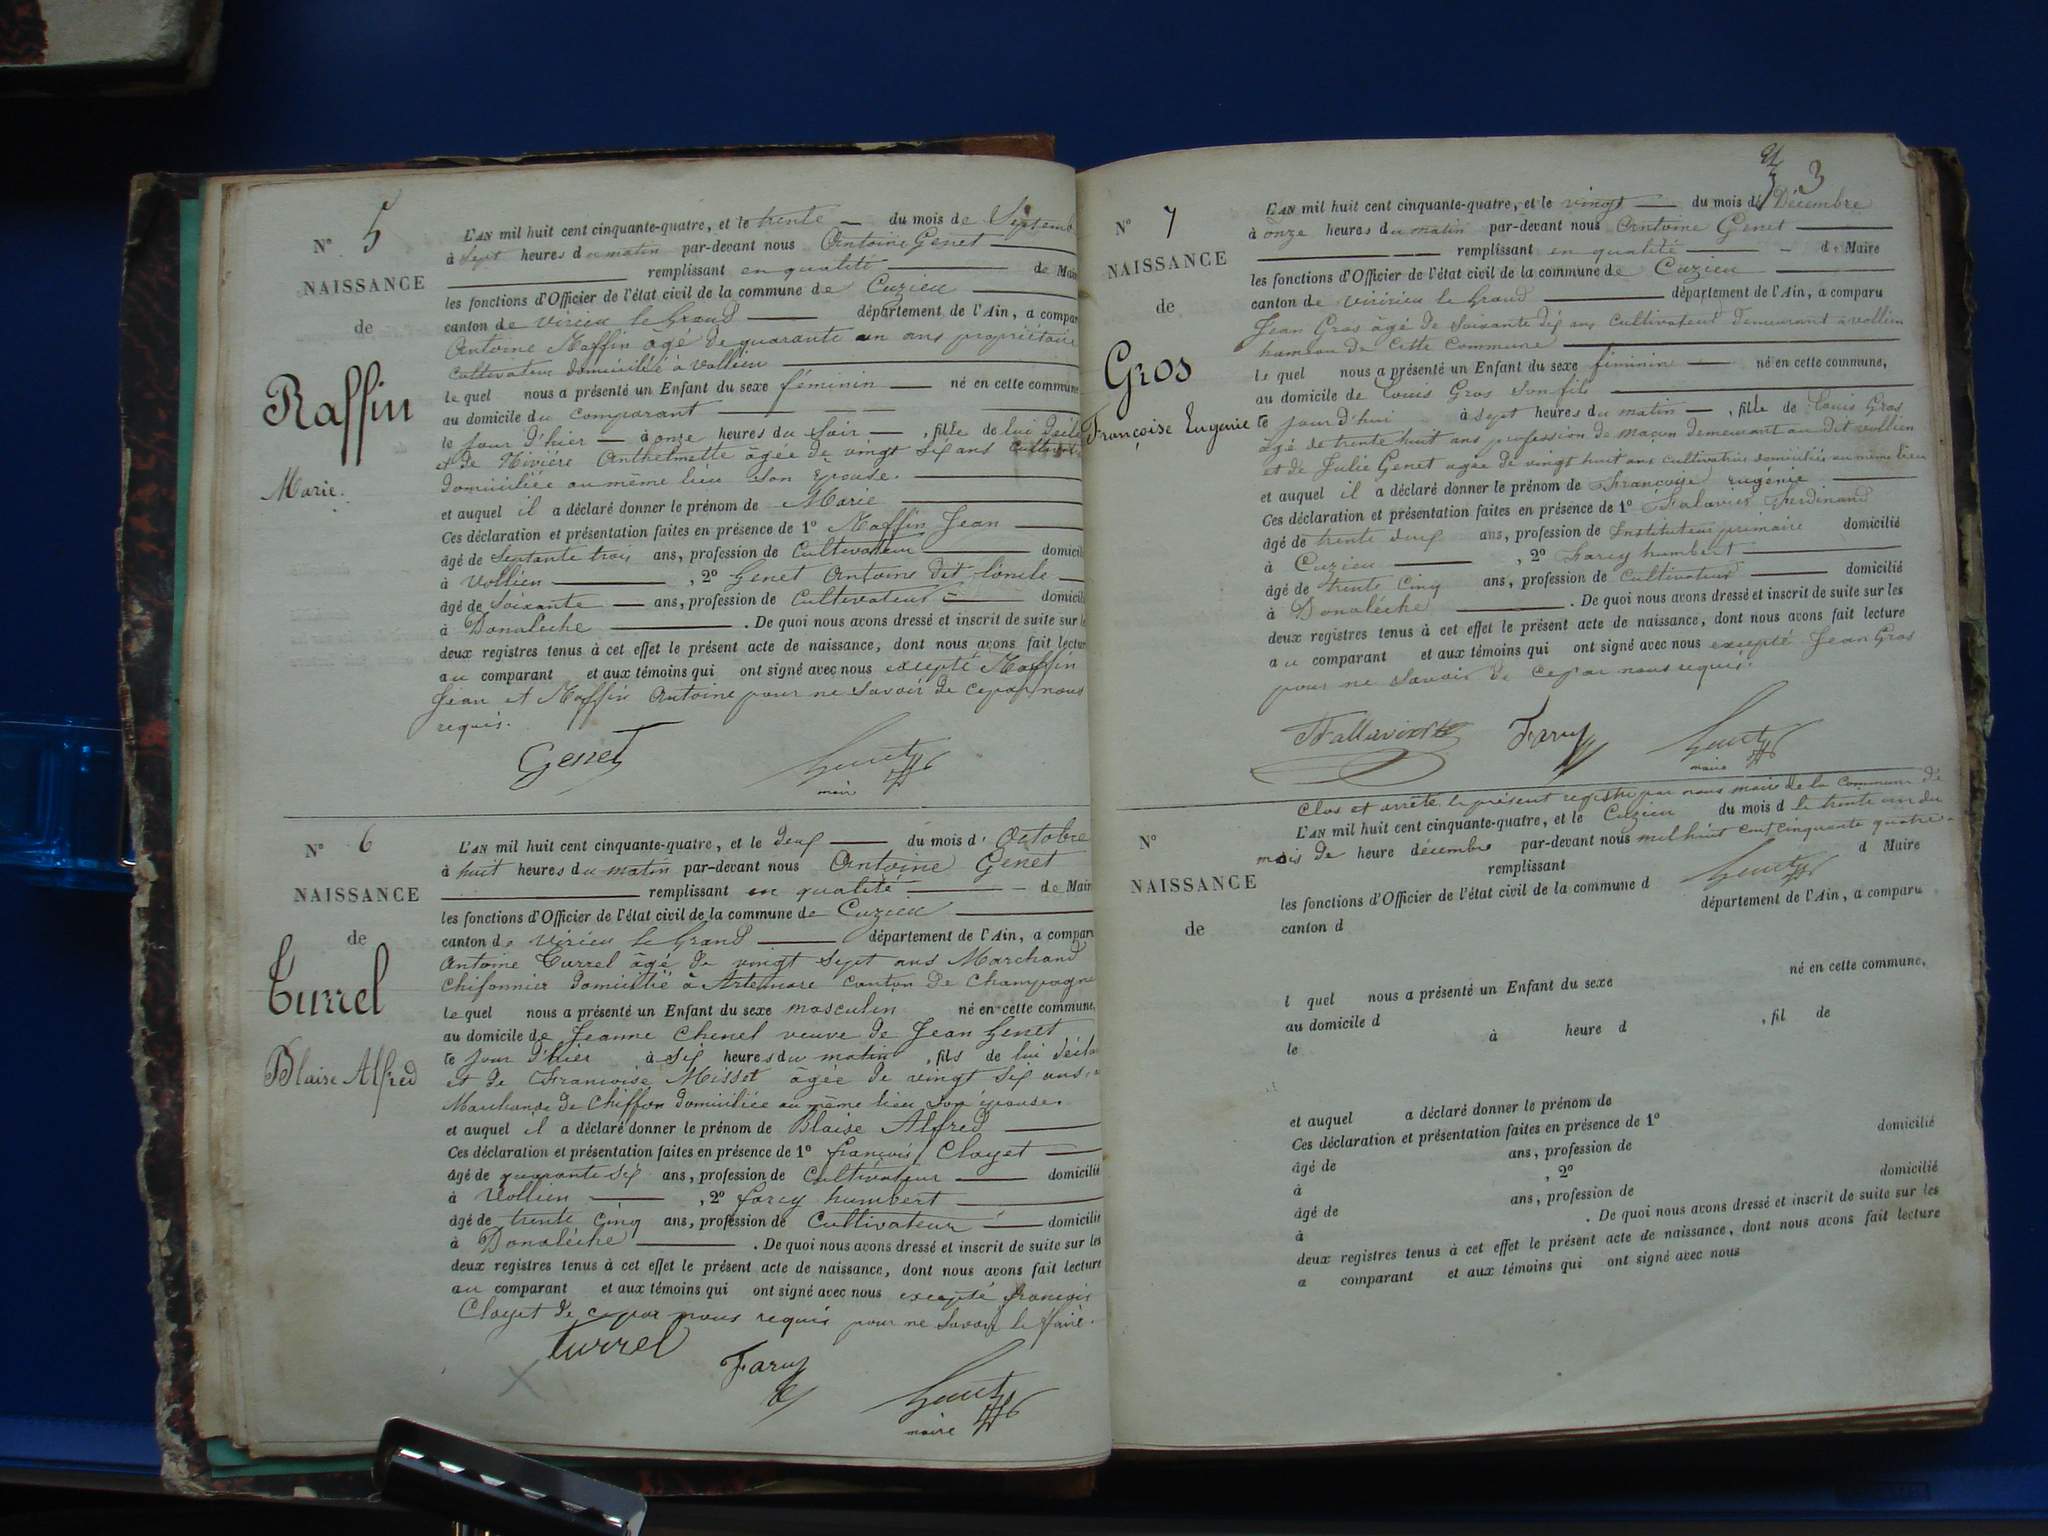 N° 5
NAISSANCE
de
Raffin
Marie.
L'AN mil huit cent cinquante-quatre, et le trente du mois de Septemb
à Sept heures du matin par-devant nous Antoine Genet
remplissant en qualité de Mair
les fonctions d'Officier de l'état civil de la commune de Cuzieu
canton de virieu le Grand département de l'Ain, a compar
Antoine Raffin âgé de quarante un ans propriétaire
Cultivateur domicilié à vollien
le quel nous a présenté un Enfant du sexe féminin né en cette commune
au domicile du comparant
le jour d'hier à onze heures du Soir , fille de lui décla
et de Rivière Anthelmette âgée de vingt six ans Cultivat
domiciliée au même lieu Son Epouse.
et auquel il a déclaré donner le prénom de Marie
Ces déclaration et présentation faites en présence de 1° Raffin Jean
âgé de Septante trois ans, profession de Cultivateur domicili
à Vollien , 2° Genet Antoine dit l'oncle
âgé de Soixante ans, profession de Cultivateur domicili
à Donalèche . De quoi nous avons dressé et inscrit de suite sur le
deux registres tenus à cet effet le présent acte de naissance, dont nous avons fait lectur
au comparant et aux témoins qui ont signé avec nous excepté Raffin
Jean et Raffin Antoine pour ne Savoir de ce par nous
requis.
Genet
Genet
maire
N° 6
NAISSANCE
de
Turrel
Blaise Alfred
L'AN mil huit cent cinquante-quatre, et le deux du mois d' Octobre
à huit heures du matin par-devant nous Antoine Genet
remplissant en qualité de Mair
les fonctions d'Officier de l'état civil de la commune de Cuzieu
canton de virieu le Grand département de l'Ain, a compar
Antoine Turrel âgé de vingt Sept ans Marchand
Chifonnier domicilié à Artemare Canton de Champagne
le quel nous a présenté un Enfant du sexe masculin né en cette commune,
au domicile de Jeanne Chenel veuve de Jean Genet
le jour d'hier à Six heures du matin , fils de lui décla
et de Francoise Misset âgée de vingt Six ans
Marchande de Chiffon domiciliée au même lieu Son épouse.
et auquel il a déclaré donner le prénom de Blaise Alfred
Ces déclaration et présentation faites en présence de 1° françois Clayet
âgé de quarante six ans, profession de Cultivateur domicilié
à Vollien , 2° farcy humbert
âgé de trente Cinq ans, profession de Cultivateur domicilié
à Donalèche . De quoi nous avons dressé et inscrit de suite sur les
deux registres tenus à cet effet le présent acte de naissance, dont nous avons fait lecture
au comparant et aux témoins qui ont signé avec nous excepté francois
Clayet de ce par nous requis pour ne Savoir le faire.
turrel
Farcy
Genet
maire
3
N° 7
NAISSANCE
de
Gros
Françoise Eugenie
L'AN mil huit cent cinquante-quatre, et le vingt du mois de Décembre
à onze heures du matin par-devant nous Antoine Genet
remplissant en qualité de Maire
les fonctions d'Officier de l'état civil de la commune de Cuzieu
canton de viririeu le Grand département de l'Ain, a comparu
Jean Gros âgé de Soixante dix ans Cultivateur demeurant à vollien
hameau de Cette Commune
le quel nous a présenté un Enfant du sexe féminin né en cette commune,
au domicile de Louis Gros Son fils
le jour d'hui à Sept heures du matin , fille de Louis Gros
âgé de trente huit ans profession de maçon demeurant au dit vollien
et de Julie Genet agée de vingt huit ans cultivatrice domiciliée au même lieu
et auquel il a déclaré donner le prénom de Françoise eugénie
Ces déclaration et présentation faites en présence de 1° Falavier Ferdinand
âgé de trente deux ans, profession de Instituteur primaire domicilié
à Cuzieu , 2° Farcy humbert
âgé de trente Cinq ans, profession de Cultivateur domicilié
à Donalèche . De quoi nous avons dressé et inscrit de suite sur les
deux registres tenus à cet effet le présent acte de naissance, dont nous avons fait lecture
au comparant et aux témoins qui ont signé avec nous excepté Jean Gros
pour ne Savoir de ce par nous requis.
Farcy
Genet
maire
Clos et arrêté le présent registre par nous maire de la Commune de
L'AN mil huit cent cinquante-quatre, et le Cuzieu du mois d le trente un du
mois de heure décembre par-devant nous mil huit cent cinquante quatre.
remplissant Genet d Maire
N°
NAISSANCE
de
les fonctions d'Officier de l'état civil de la commune d
canton d département de l'Ain, a comparu
l quel nous a présenté un Enfant du sexe né en cette commune,
au domicile d
le à heure d , fil de
et auquel a déclaré donner le prénom de
Ces déclaration et présentation faites en présence de 1°
âgé de ans, profession de domicilié
à , 2°
âgé de ans, profession de domicilié
à . De quoi nous avons dressé et inscrit de suite sur les
deux registres tenus à cet effet le présent acte de naissance, dont nous avons fait lecture
a comparant et aux témoins qui ont signé avec nous